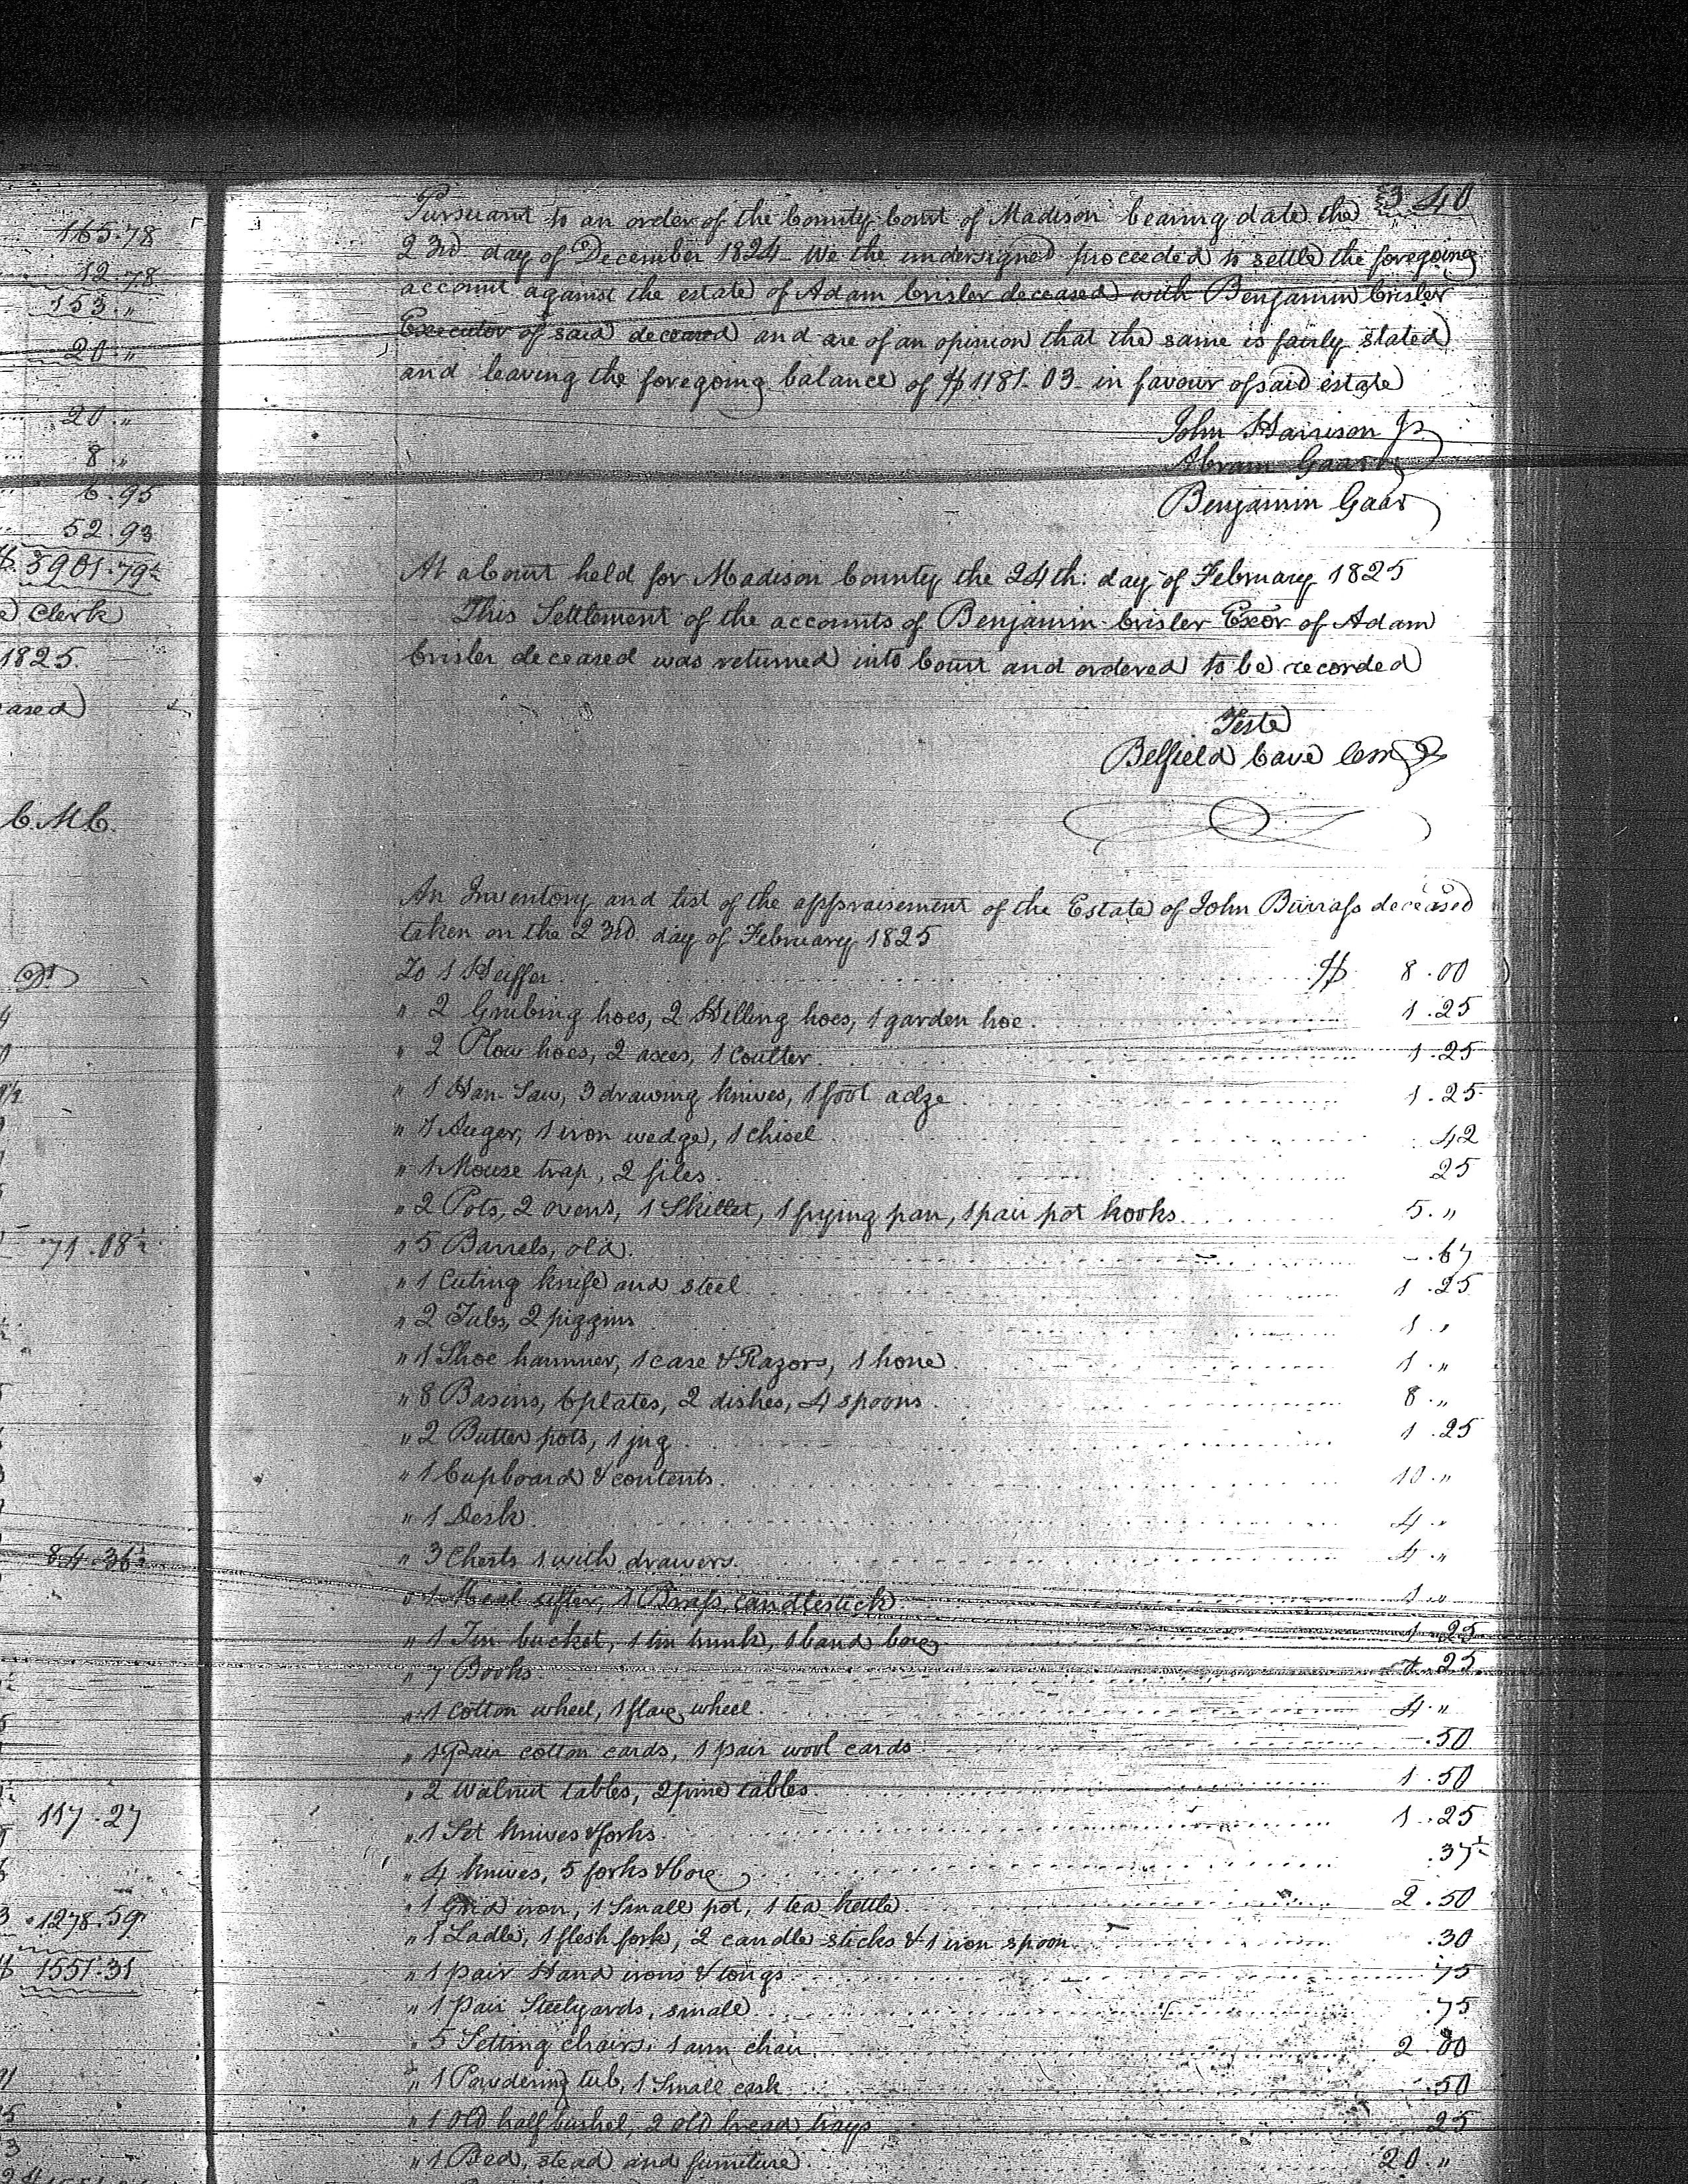 165.78
12.78
153.〃
20.〃
20.〃
8.〃
6.95
52.93
$3901.79½
Clerk
1825
ased
C.M.C.
Dr
71.08½
84.36½
117.27
1278.59
1551.31
340
Pursuant to an order of the County Court of Madison bearing date the
23rd day of December 1824 We the undersigned proceeded to settle the foregoing
account against the estate of Adam Crisler deceased with Benjamin Crisler
Executor of said deceased and are of an opinion that the same is fairly stated
and leaving the foregoing balance of $1181.03 in favour of said estate
John Harrison Jr.
Abram Gaar
Benjamin Gaar
At a Court held for Madison County the 24th: day of February 1825
This Settlement of the accounts of Benjamin Crisler Exor of Adam
Crisler deceased was returned into Court and ordered to be recorded
Teste
Belfield Cave
An Inventory and list of the appraisement of the Estate of John Burrass deceased
taken on the 23rd day of February 1825
To 1 Heiffer $ 8.00
〃 2 Grubing hoes, 2 Hilling hoes, 1 garden hoe 1.25
〃 2 Plow hoes, 2 axes, 1 Coulter 1.25
〃 1 Han Saw, 3 drawing knives, 1 foot adze 1.25
〃 1 Auger, 1 iron wedge, 1 chisel .42
〃 1 Mouse trap, 2 files 25
〃 2 Pots, 2 ovens, 1 Skillet, 1 frying pan, 1 pair pot hooks 5.〃
〃 5 Barrels, old .67
〃 1 Cuting knife and steel 1.25
〃 2 Tubs, 2 piggins 1.〃
〃 1 Shoe hammer, 1 case & Razors, 1 hone 1.〃
〃 8 Basins, 6 plates, 2 dishes, 4 spoons 8.〃
〃 2 Butter pots, 1 jug 1.25
〃 1 Cupboard & contents 10.〃
〃 1 Desk 4.〃
〃 3 Chests 1 with drawers 4.〃
〃 1 Meal sifter, 1 Brass candlestick 1.〃
〃 1 Tin bucket, 1 tin trunk, 1 band box 1.25
〃 7 Books 1.25
〃 1 Cotton wheel, 1 flax wheel 4.〃
〃 1 Pair cotton cards, 1 pair wool cards .50
〃 2 Walnut tables, 2 pine tables 1.50
〃 1 Set knives & forks 1.25
〃 4 knives, 5 forks & box .37½
〃 1 Grid iron, 1 Small pot, 1 tea kettle 2.50
〃 1 Ladle, 1 flesh fork, 2 candle sticks & 1 iron spoon .30
〃 1 pair Hand irons & tongs 75
〃 1 Pair Steelyards, small .75
〃 5 Setting chairs, 1 arm chair 2.00
〃 1 Powdering tub, 1 Small cask .50
〃 1 Old half bushel, 2 old bread trays 25
〃 1 Bed, stead and furniture 20.〃